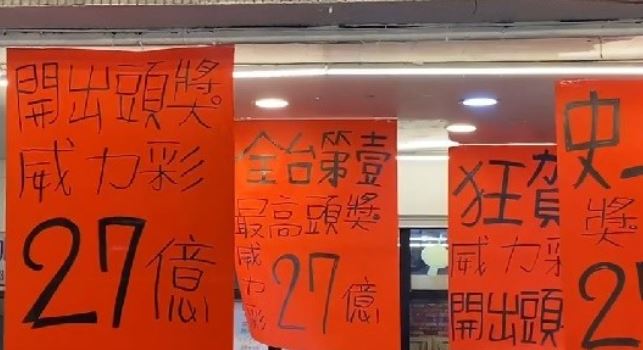 開出頭獎
威力彩
27億
全台第壹
最高頭獎
威力彩
27億
狂賀
威力彩
開出頭
史
獎
2